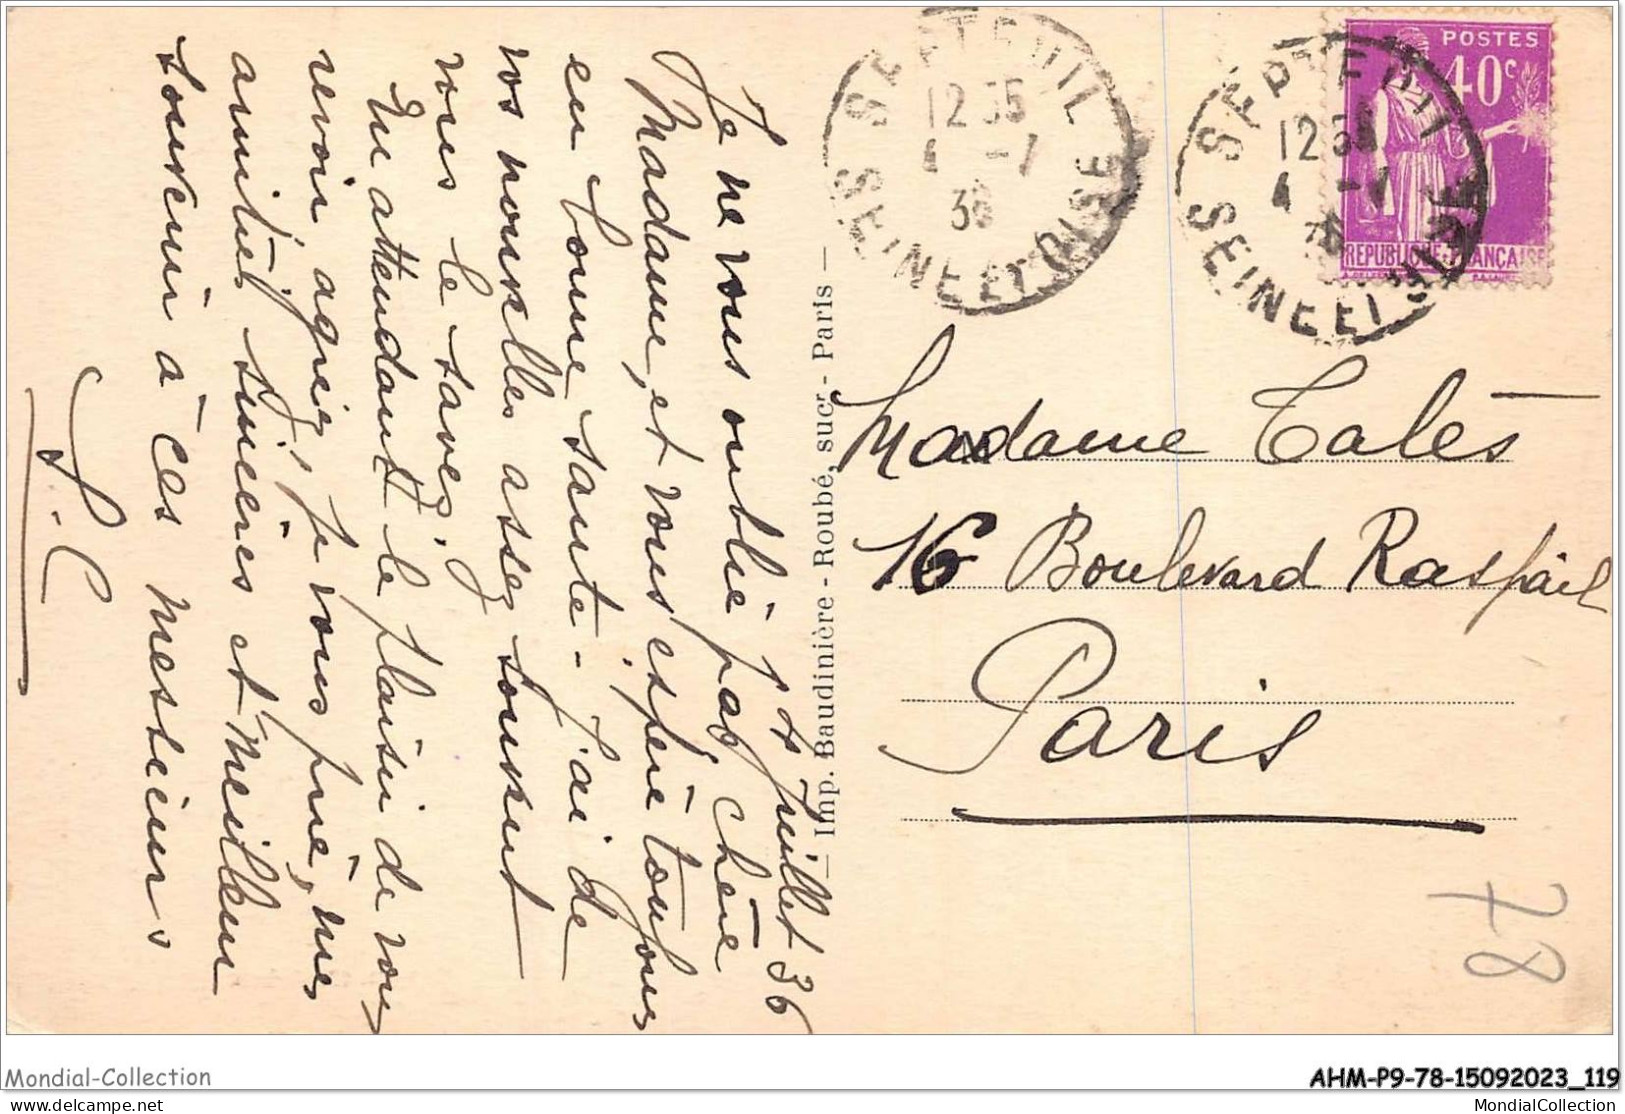 14 Juillet 36
Je ne vous oublie pas, chère
Madame, et vous espère toujours
en bonne santé - J'ai de
vos nouvelles assez souvent
vous le savez,
En attendant le plaisir de vous
revoir agréez, je vous prie, mes
amitiés sincères et meilleur
souvenir à ces messieurs
S.C
Imp. Baudinière - Roubé, sucʳ - Paris
SEPTEUIL
12 35
4 -7
36
SEINE ET OISE
SEPTEUIL
12 35
4 -7
36
SEINE ET OISE
POSTES
40c
REPUBLIQUE FRANÇAISE
Madame Talès
16 Boulevard Raspail
Paris
78
Mondial-Collection
AHM-P9-78-15092023_119
www.delcampe.net
MondialCollection